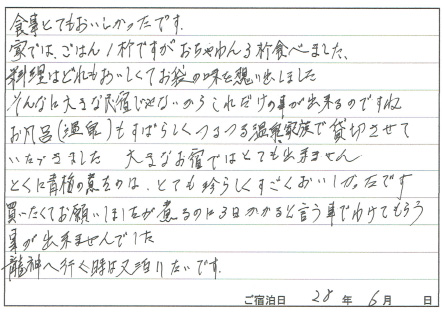 食事とてもおいしかったです。
家では、ごはん1杯ですがおちゃわん3杯食べました、
料理はどれもおいしくてお袋の味を想い出しました
そんなに大きな民宿じゃないからこれだけの事が出来るのですね
お風呂(温泉)もすばらしくつるつる温泉家族で貸切させて
いただきました 大きなお宿ではとても出来ません
とくに青梅の煮たのは、とても珍らしくすごくおいしかったです
買いたくてお願いしましたが煮るのに3日かかると言う事でわけてもらう
事が出来ませんでした
龍神へ行く時は又泊りたいです。
ご宿泊日 28 年 6 月 日